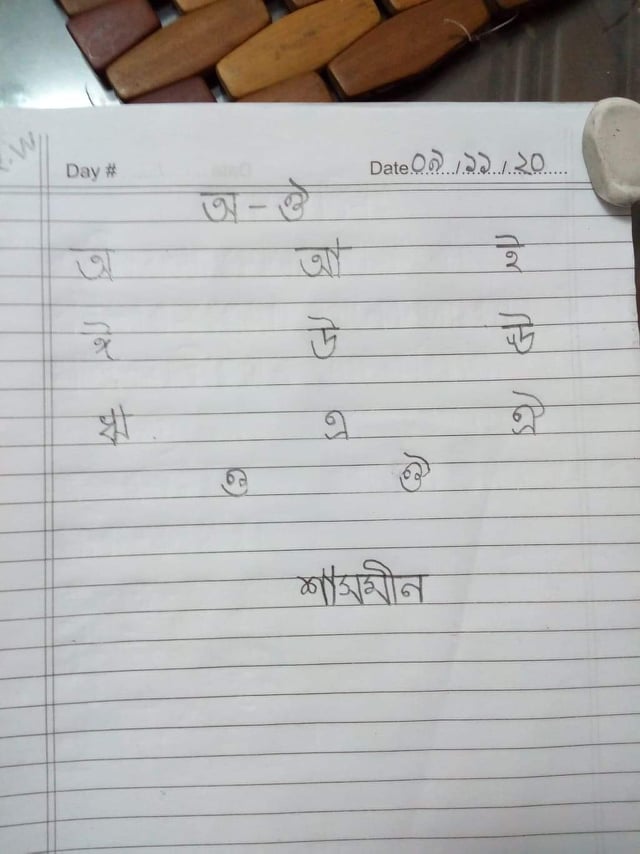 Day # Date ০৯/১১/২০
অ - ঔ
অ আ ই
ঈ উ ঊ
ঋ এ ঐ
ও ঔ
শামমীন